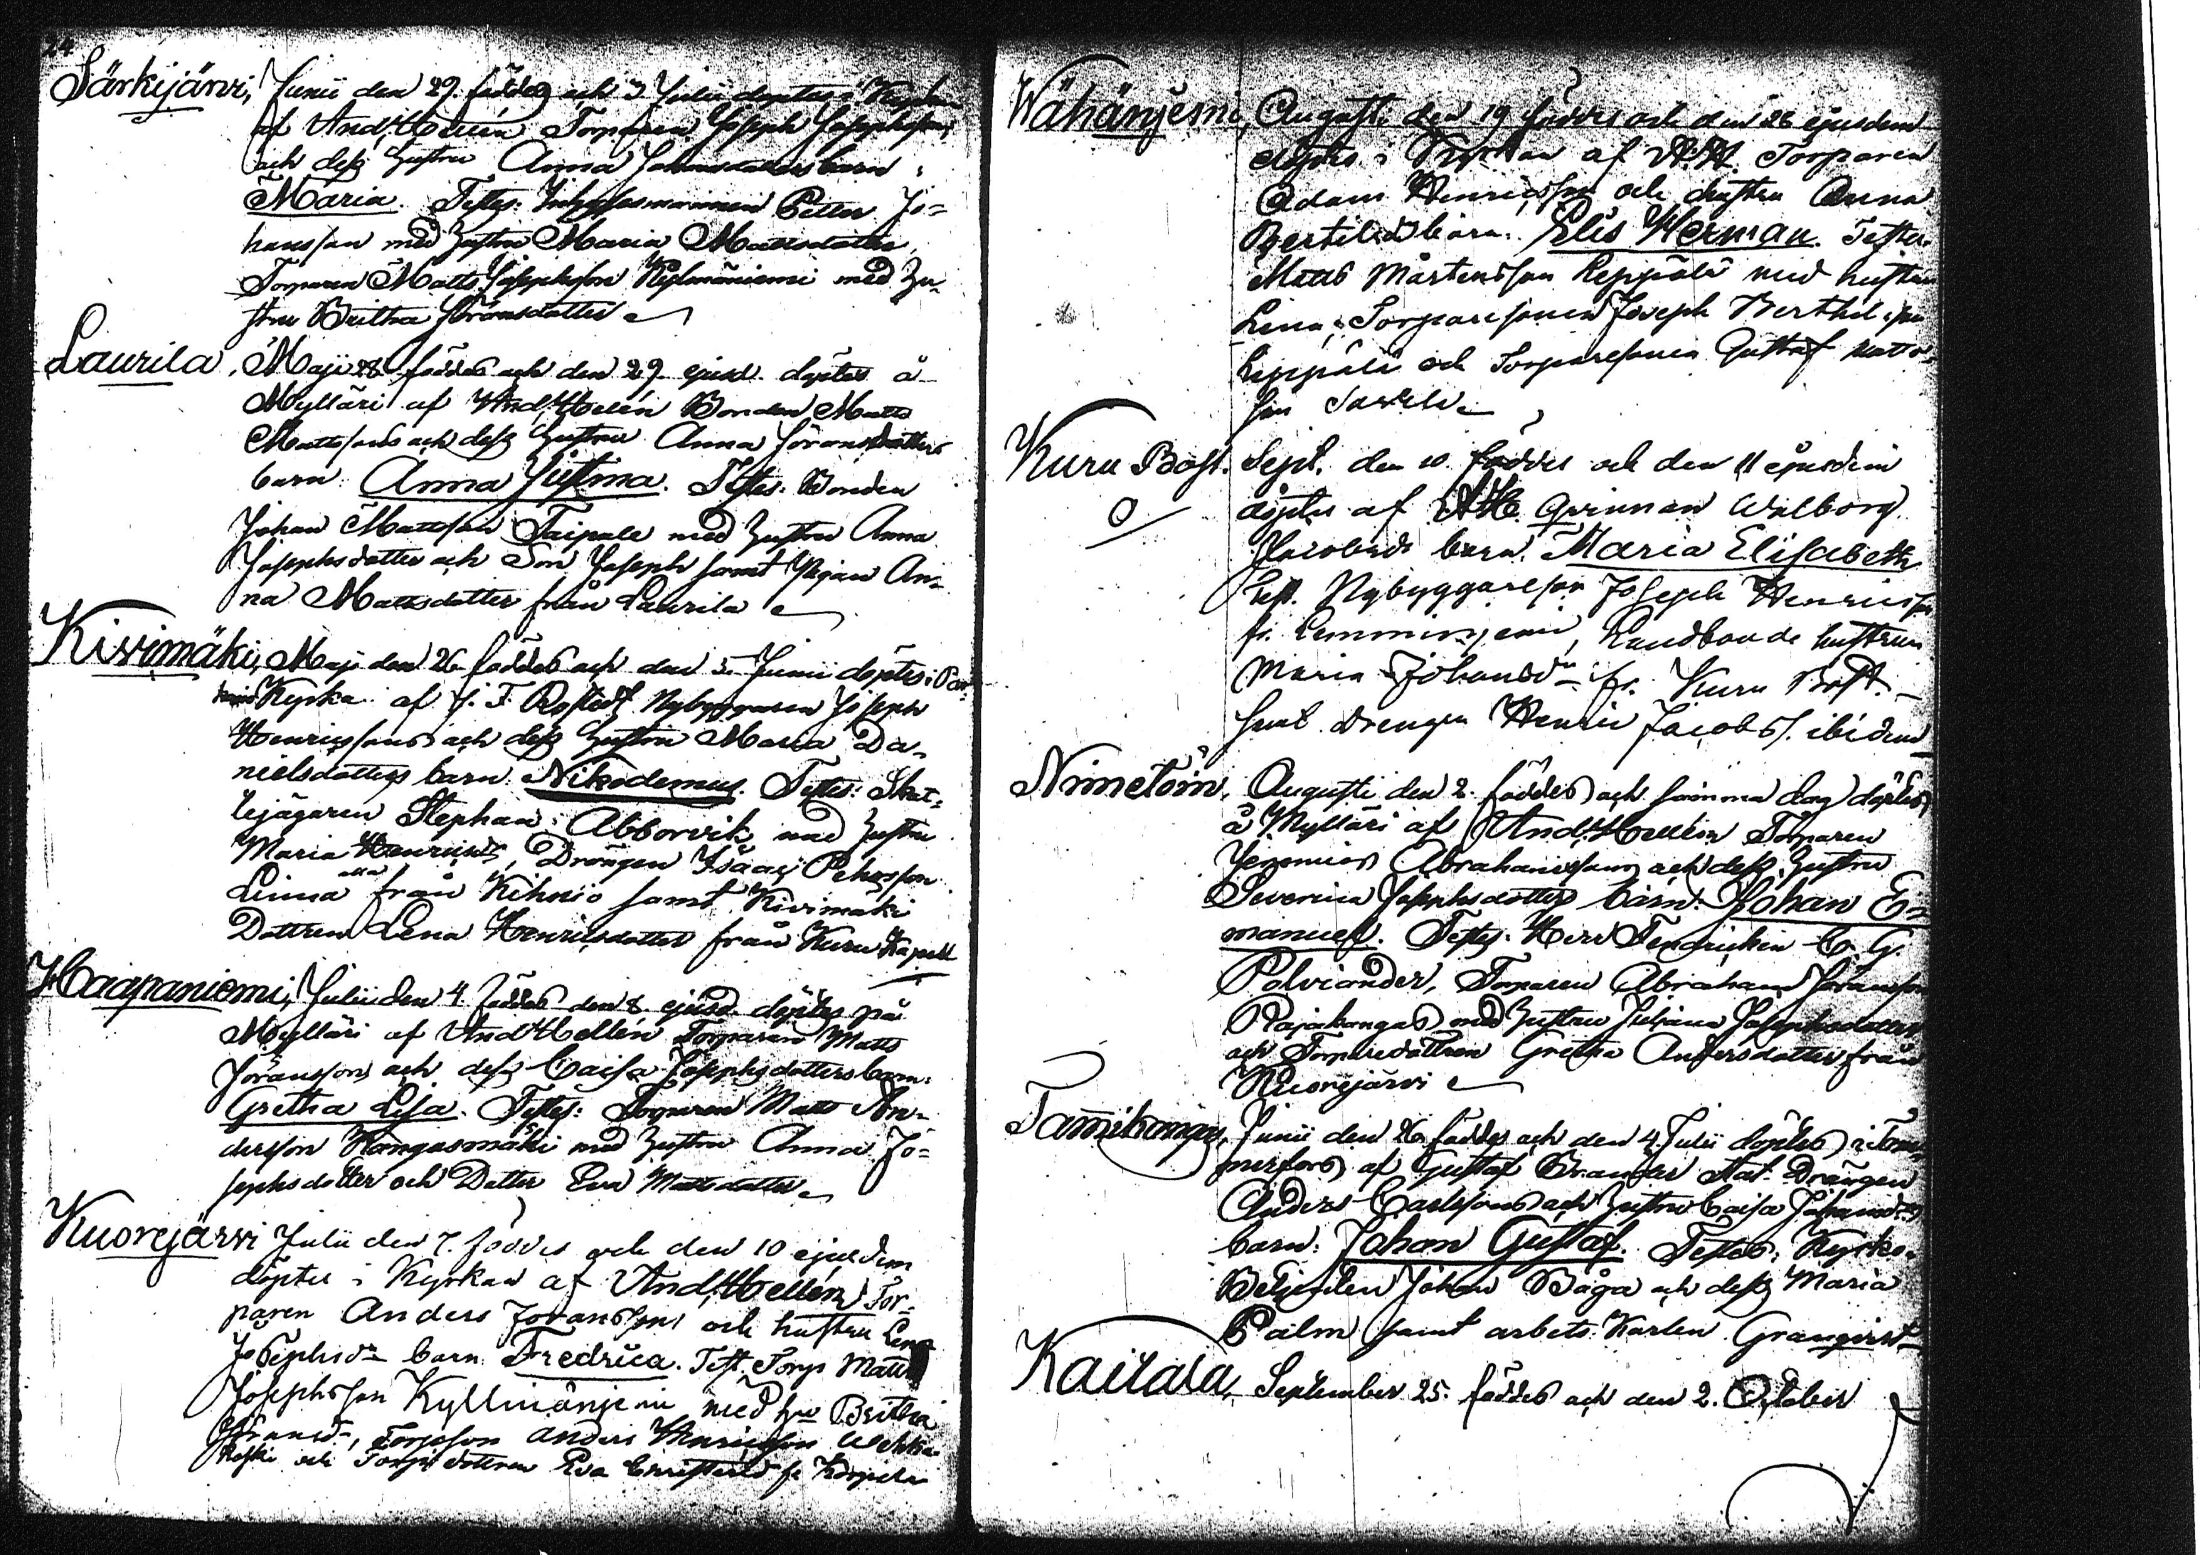 24
Särkijärvi, Junii den 29. föddes och 3 Julii döptes i Kyrkan
af And. Hellén Torparen Joseph Josephssons
och dess hustru Anna Johansdotters barn:
Maria. Testes: Inhysesmannen Petter Jo=
hansson med hustru Maria Mattsdotter,
Torparen Matts Josephsson Kyllmäniemi med hu-
stru Britha Jöransdotter
Laurila, Maji 28 föddes och den 29 ejusd. döptes å
Mylläri af And. Hellén Bonden Matts
Mattssons och dess hustru Anna Jöransdotters
barn: Anna Justina. Testes: Bonden
Johan Mattsson Taipale med hustru Anna
Josephsdotter och Son Joseph samt Pigan An-
na Mattsdotter från Laurila
Kivimäki, Maji den 26 föddes och den 5 Junii döptes i Par-
kano Kyrka af J. F. Nybyggaren Joseph
Henricssons och dess hustru Maria Da-
nielsdotters barn: Nikodemus. Testes: Skat-
tejägaren Stephan Abborvik med hustru
Maria Henricsdr, Drängen Isaac
Linna från Kihniö samt Kivimäki
Dottren Lena Henricsdotter från Kuru Kapell
Haapaniemi, Julii den 4. föddes den 8 ejusd. döptes på
Mylläri af And. Hellén Torparen Matts
Jöransons och dess Caisa Josephsdotters barn:
Gretha Lisa. Testes: Torparen Matts An-
dersson Kangasmäki med hustru Anna Jo=
sephsdotter och Dotter Eva Mattsdotter
Kuorejärvi Julii den 7. föddes och den 10 ejusdem
döptes i Kyrkan af And. Hellén Tor-
paren Anders Joranssons och hustru Lena
Josephsdr barn: Fredrica. Test. Torp. Matts
Josephsson Kyllmänjemi med hu Britha
Jöransdr, Torpson Anders Henricsson
koski och Torp. dottren Eva
Wähänjemi, Augusti den 19 föddes och den 26 ejusdem
döptes i Kyrkan af A. H. Torparen
Adam Henricssons och hustru Anna
Bertilsdr barn: Elis Herman. Testes.
Matts Mårtensson Leppälä med hustru
Lena, Torparsonen Joseph Berthilsson
Leppälä och Torparesonen Gustaf Matts-
son
Kuru Bost. Sept. den 10 föddes och den 11 ejusdem
döptes af A H. Qvinnan Walborg
Jacobsdr barn. Maria Elisabeth
Test. Nybyggareson Joseph Henricsson
fr. Lemminjemi, Landbonde hustrun
Maria Johansdr fr. Kuru Bost.
samt Drengen Henric Jacobs. ibidem
Nimetöin, Augusti den 2. föddes och samma dag döptes
å Mylläri af And. Hellén Torparen
Jeremias Abrahamssons och dess hustru
Severina Josephsdotters barn: Johan E-
manuel. Testes: Herr C. G.
Polviander, Torparen Abraham Jöransson
Rajakangas med hustru Juliana Josephsdotter
och Torparedottren Gretha Andersdotter från
Kuorejärvi
Tammikangas, Junii den 26 föddes och den 4. Julii döptes i Tam-
merfors af Gustaf Brander Stat. Drängen
Anders Carlssons och hustru Caisa Johansdrs
barn: Johan Gustaf. Testes: Kyrko-
Betjenten Johan Båga och dess Maria
Palm samt arbets Karlen Granqvist
Kaitala, September 25. föddes och den 2. October